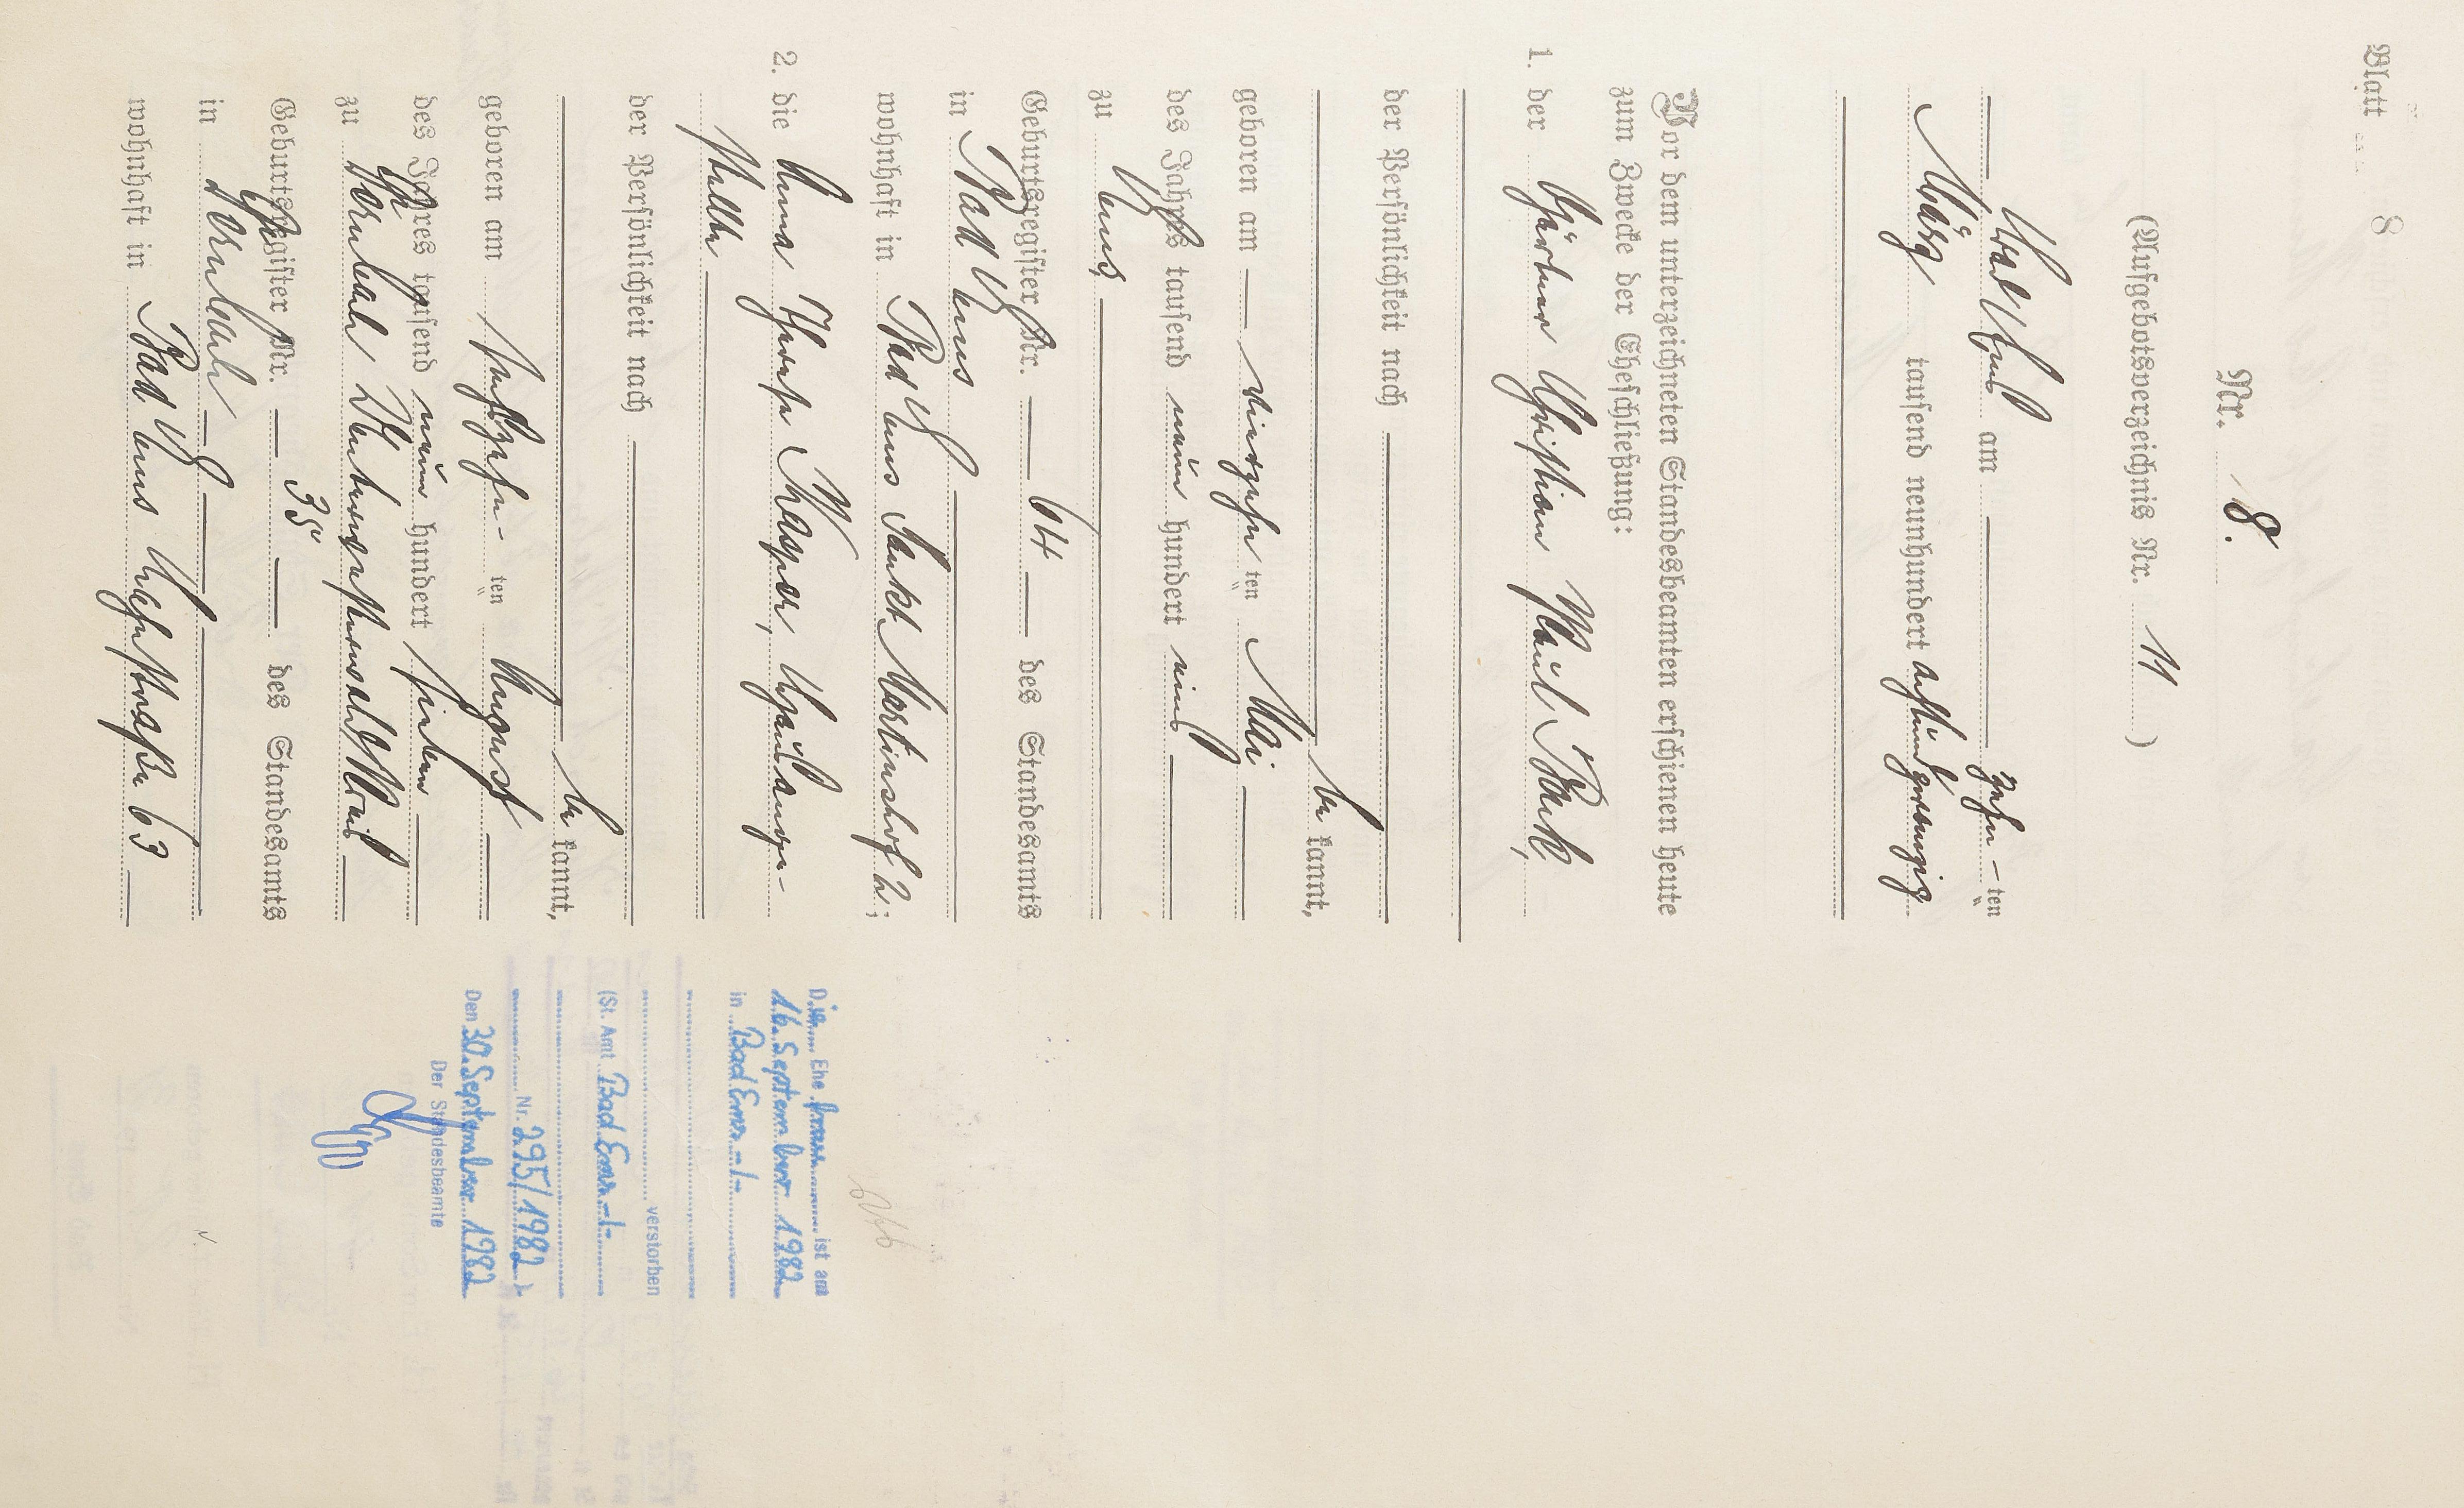 Blatt 8
Nr. 8.
(Aufgebotsverzeichnis Nr. 11)
Bad Ems am zehn-ten
März tausend neunhundert achtundzwanzig
Vor dem unterzeichneten Standesbeamten erschienen heute
zum Zwecke der Eheschließung:
1. der Gärtner Christian Paul Bank,
der Persönlichkeit nach
be kannt,
geboren am vierzehn ten Mai
des Jahres tausend neun hundert eins
zu Ems
Geburtsregister Nr. 64 des Standesamts
in Bad Ems
wohnhaft in Bad Ems Sankt Martinshof 2;
2. die Anna Therese Kasper,
der Persönlichkeit nach
be kannt,
geboren am achtzehn-ten August
des Jahres tausend neun hundert sieben
zu Dernbach Unterwesterwaldkreis
Geburtsregister Nr. 35 des Standesamts
in Dernbach
wohnhaft in Bad Ems Lahnstraße 63
Die Ehefrau ist am
16. September 1982
in Bad Ems -/-
verstorben
(St. Amt Bad Ems -/-
Nr. 295/1982)
Den 30. September 1982
Der Standesbeamte